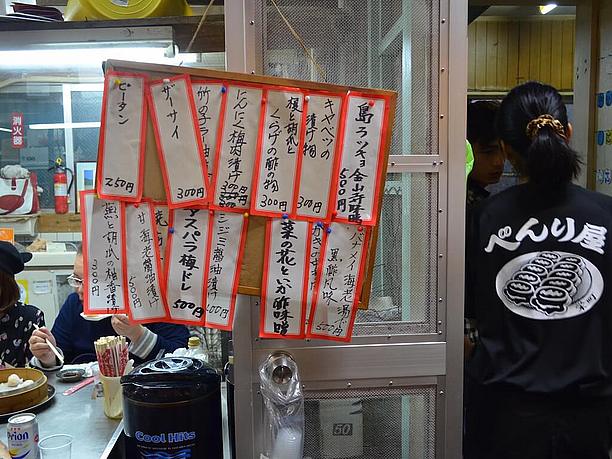 島ラッキョ金山寺味噌
500円
キャベツの
漬け物
300円
根と胡瓜と
くらげの酢の物
300円
にんにく梅肉漬け
300円
竹の子ラー油
ザーサイ
300円
ピータン
250円
バナメイ海老湯
黒酢風味
500円
菜の花といか酢味噌
500円
シジミ醤油漬け
500円
アスパラ梅ドレ
500円
甘海老醤油漬け
500円
300円
べんり屋
消火器
Cool Hits
Orion
50